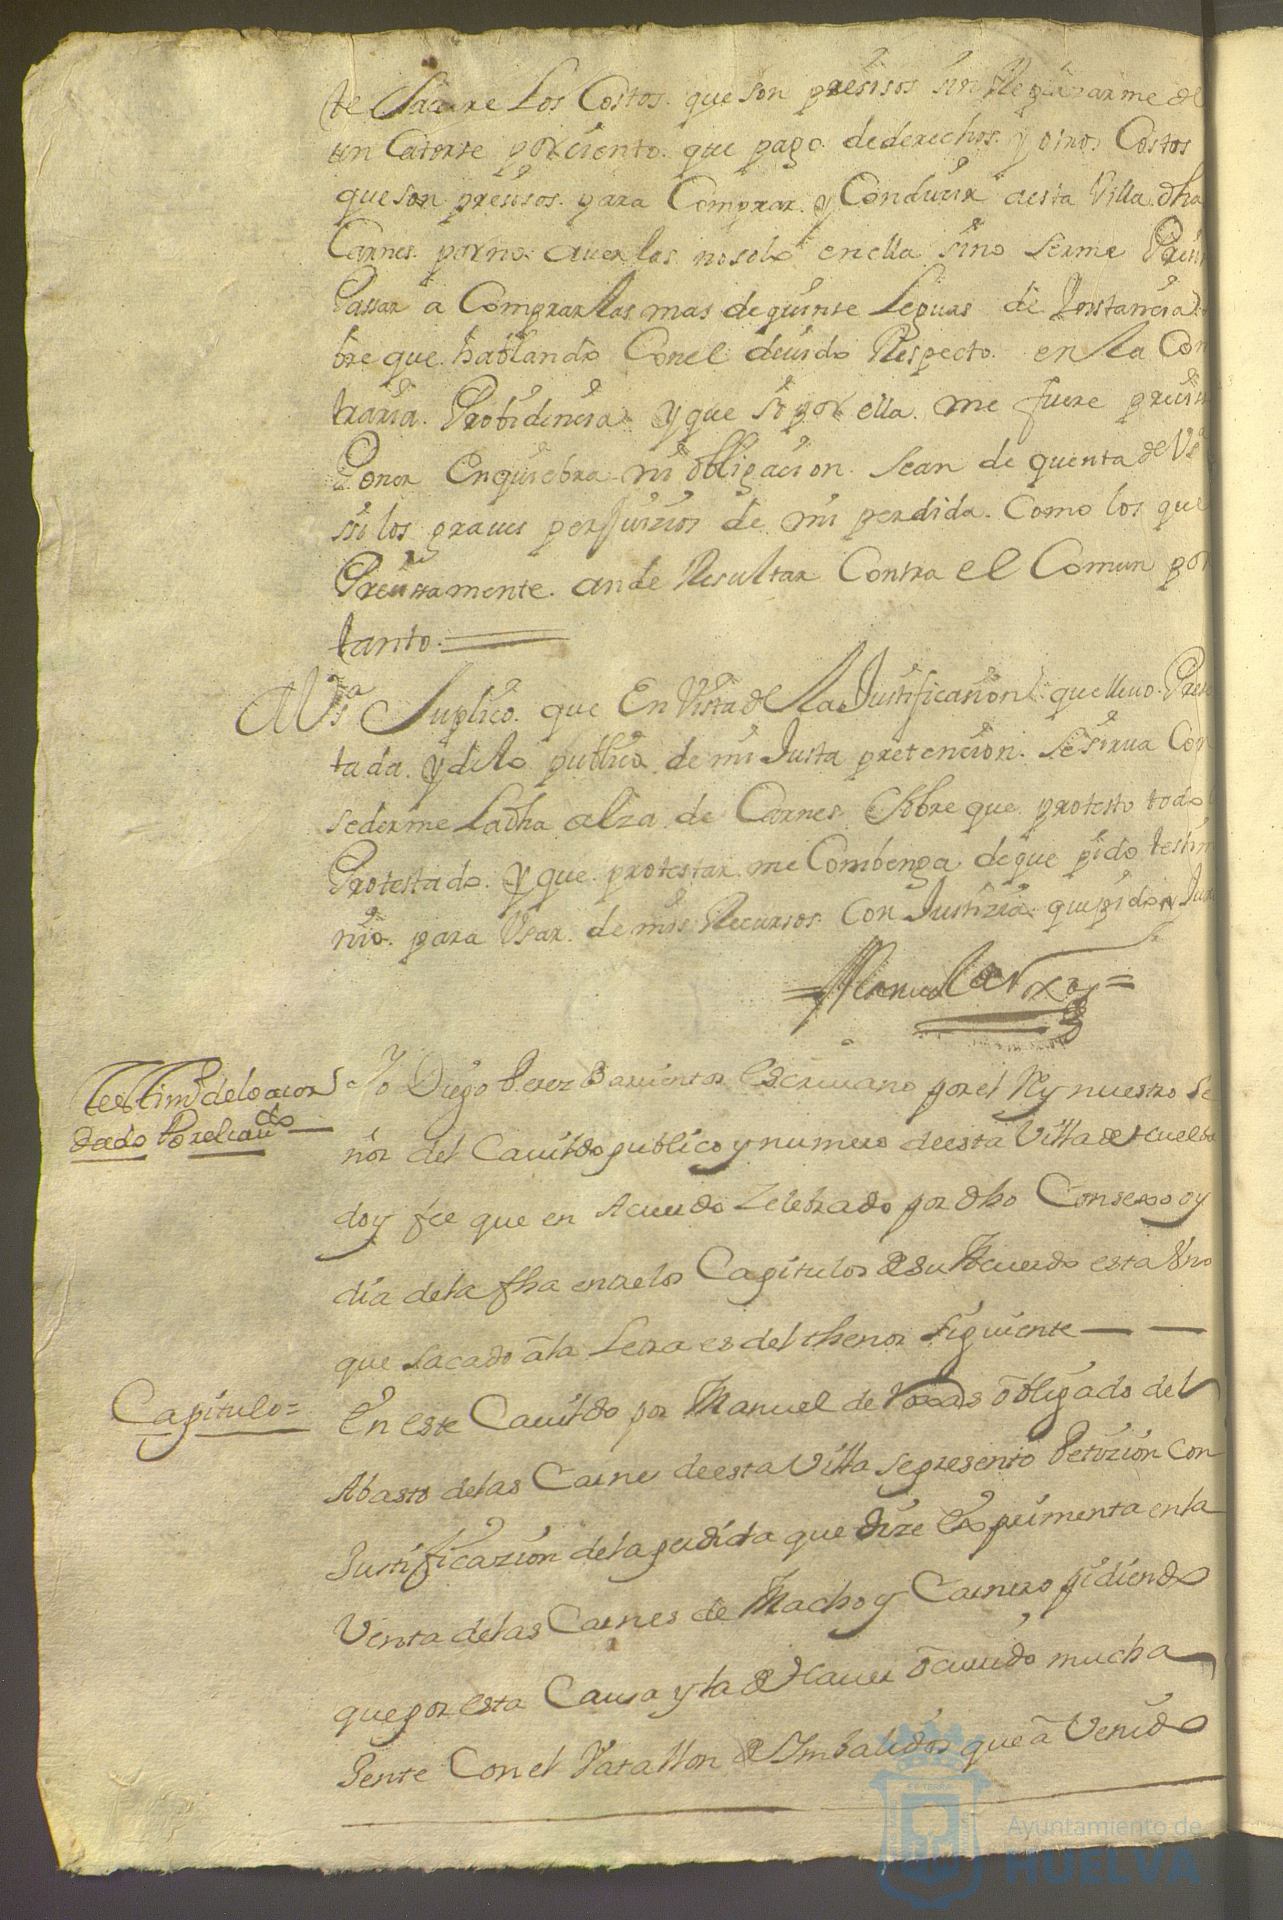 te sacare Los Costos. que son presisos sin Reparar me de
un Catorse por ciento. que pago. de derechos. y otros. Costos
que son presisos. para Comprar. y Conducir a esta Villa. dha
Carnes. por no. averlas no solo en ella sino serme
Passar a Comprarlas mas de quinse Leguas de Instancia
bre que. hablando Con el deuido Respecto. en la Con
traria. Probidencia y que si por ella. me fuere
Poner En quiebra mi obligacion. sean de quenta de Vsª
si los graues perjuizios de mi perdida. Como los que
Presissamente. an de Resultar Contra el Comun por
tanto.
A Vsª Suplico. que En Vista de la Justificacion. que lleuo. Presen
tada. y de lo publico de mi Justa pretencion. se sirua Con
sederme La dha alza de Carnes. Sobre que. protesto todo
Protestado. y que. protestar. me Combenga de que pido testim
nio. para Vsar. de mis Recursos. Con Justizia que pido y Jur
=Manuel de Roxas=
Testimº de lo acor
dado Por el cauᵈᵒ
Yo Diego Perez Barrientos Escriuano por el Rey nuestro Se
ñor del Cauildo publico y numero de esta Villa de Huelba
doy fee que en Acuerdo Zelebrado por dho Consexo oy
dia de la fha entre los Capitulos de su Acuerdo esta Vno
que sacado a la Letra es del thenor siguiente
Capitulo=
En este Cauildo por Manuel de Roxas obligado del
Abasto de las Carnes de esta Villa se presento Petizion Con
Justificazion de la perdida que dize Experimenta en la
Venta de las Carnes de Macho y Carnero pidiendo
que por esta Causa y la de Hauer ocurrido mucha
Gente Con el Vatallon de Imbalidos que a Venido
Ayuntamiento de
HUELVA